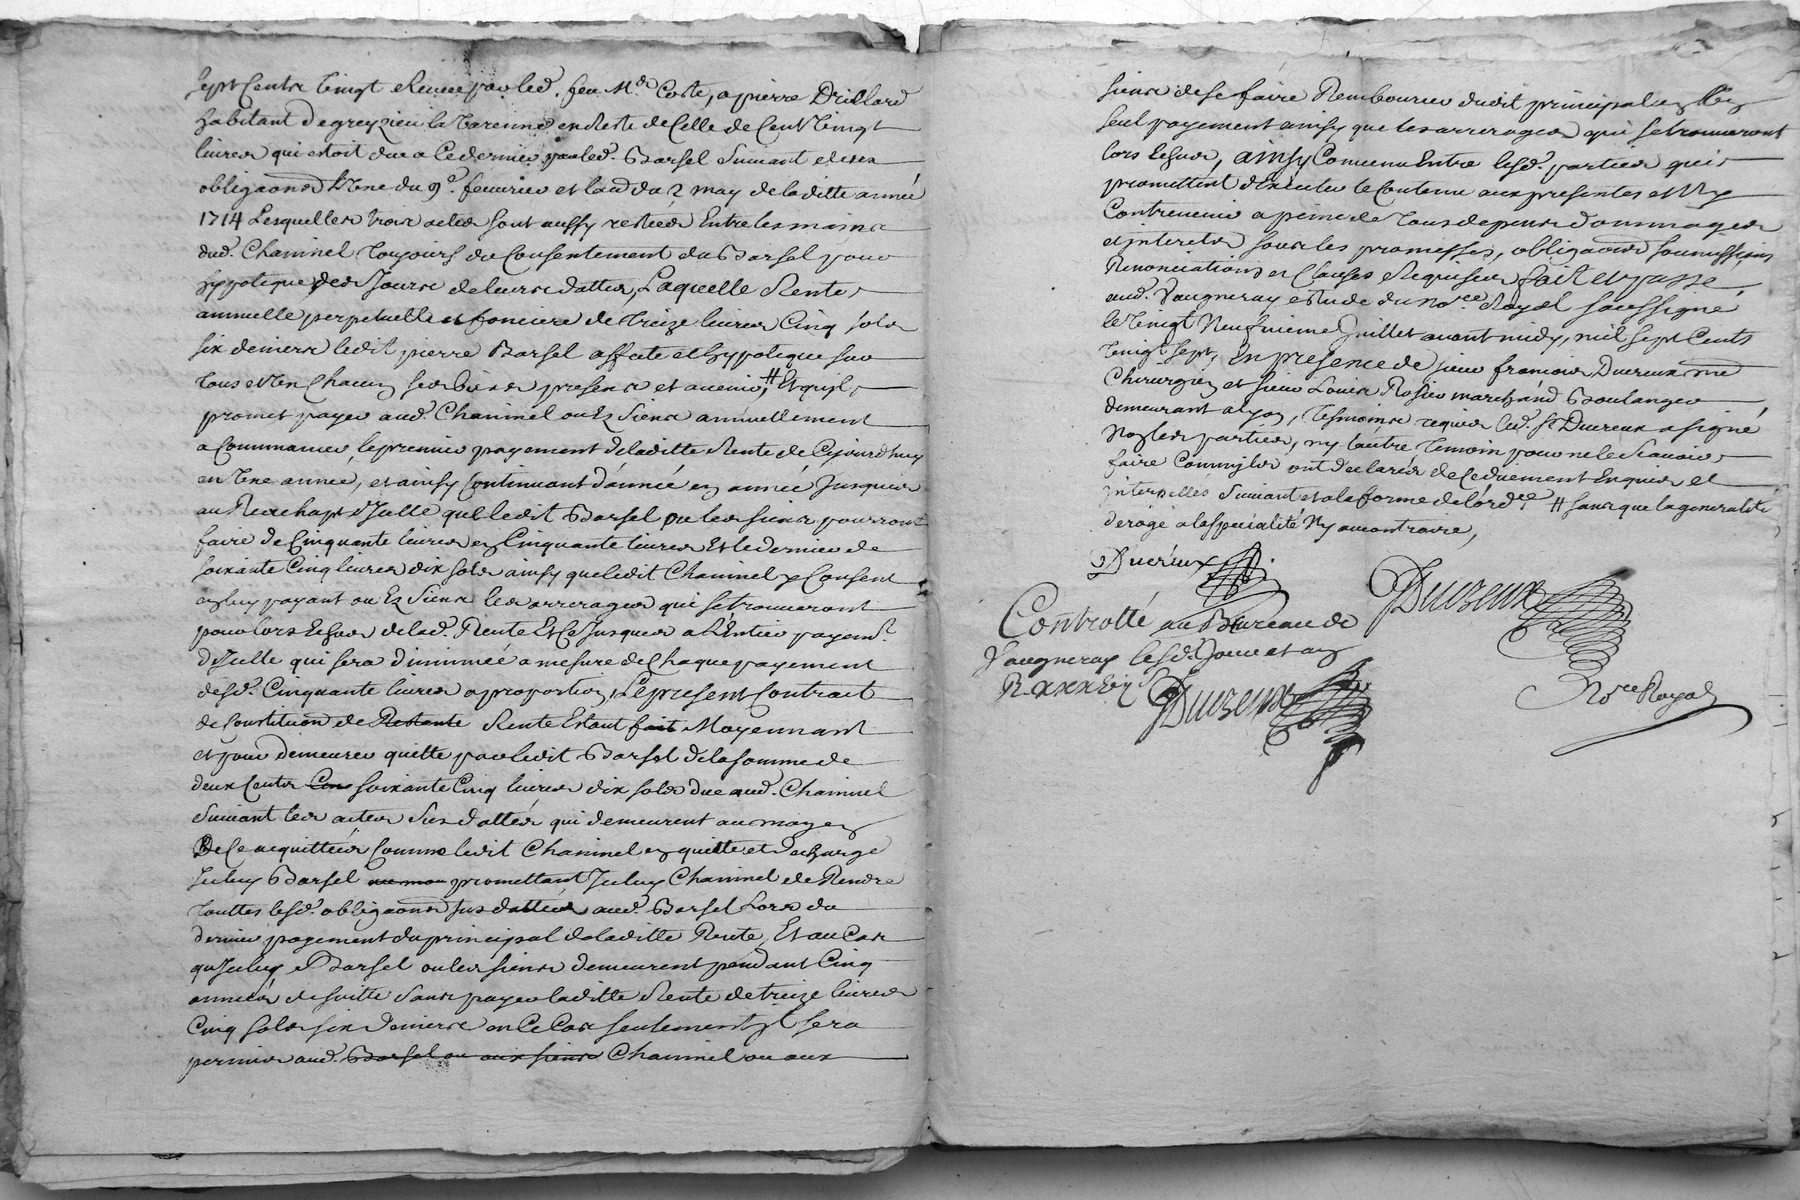 sept Cents vingt et par led. feu Mr. Coste, a pierre Drillard
habitant de greyzieu la varenne en Reste de Celle de Cent vingt
livres qui estoit due a Ce dernier par led. Barsel Suivant et
obligaons L'une du 9e. fevrier et du 2 may de laditte année
1714 Lesquelles trois actes sont aussy restées Entre les mains
dud. Chaninel toujours du Consentement du Barsel pour
hypoteque des Jours de leurs dattes, Laquelle Rente
annuelle perpetuelle et fonciere de treize livres Cinq sols
six deniers ledit pierre Barsel affecte et hypoteque sur
tous et Un Chacun ses biens presens et avenir, # Et qu'il
promet payer aud. Chaninel ou Es Siens annuellement
a Commancer le premier payement de laditte Rente de Cejourd'huy
en Une année, et ainsy Continuant d'année en année Jusques
au Rachapt d'Jcelle que ledit Barsel ou les siens pourront
faire de Cinquante livres en Cinquante livres Et le dernier de
soixante Cinq livres dix sols ainsy que ledit Chaninel y Consent
en luy payant ou Es Siens les arrerages qui se trouveront
pour lors Echus de lad. Rente Et Ce Jusques a L'Entier payemt.
d'Jcelle qui sera diminuée a mesure de Chaque payement
desd. Cinquante livres a proportion, Le present Contrait
de Constitution de Restante Rente Estant fait Moyennant
et pour demeurer quitte par ledit Barsel de la somme de
deux Cents Cens soixante Cinq livres dix sols due aud. Chaninel
Suivant les actes Sus dattés qui demeurent au moyen
De Ce acquittées Comme ledit Chaninel en quitte et decharge
Jceluy Barsel au moy promettant Jceluy Chaninel de Rendre
touttes lesd. obligaons sus dattées aud. Barsel Lors du
dernier payement du principal de laditte Rente, Et au Cas
qu'Jceluy Barsel ou les siens demeurent pendant Cinq
années de suitte Sans payer laditte Rente de treize livres
Cinq sols six deniers en Ce Cas seulement Jl sera
permis aud. Barsel ou aux siens Chaninel ou aux
siens de se faire Rembourcer dudit principal en Un
seul payement ainsy que les arrerages qui se trouveront
lors Echus, ainsy Convenu Entre lesd. parties qui
promettent d'Executer le Contenu aux presentes et N'y
Contrevenir a peine de tous depens dommages
et interets sous les promesses, obligaons soumissions
Renonciations et Clauses Requises fait et passé
aud. Vaugneray estude du Nore. Royal soussigné
le vingt Neufvieme Juillet avant midy, mil sept Cents
vingt sept, En presence de sieur francois Ducreux me
Chirurgien et sieur Louis Rosier marchand Boulanger
demeurant a lyon, tesmoins requis led. Sr Ducreux a signé
Non les parties, ny l'autre temoin pour ne le Scavoir
faire Comm'jls ont declarés de Ce duement Enquis et
interpellés Suivant et a la forme de l'ordce # sans que la generalité
deroge a la specialité Ny au contraire,
Ducreux
Controllé au Bureau de
Vaugneray lesd. Jour et an
Ducreux
Ducreux
Nore Royal